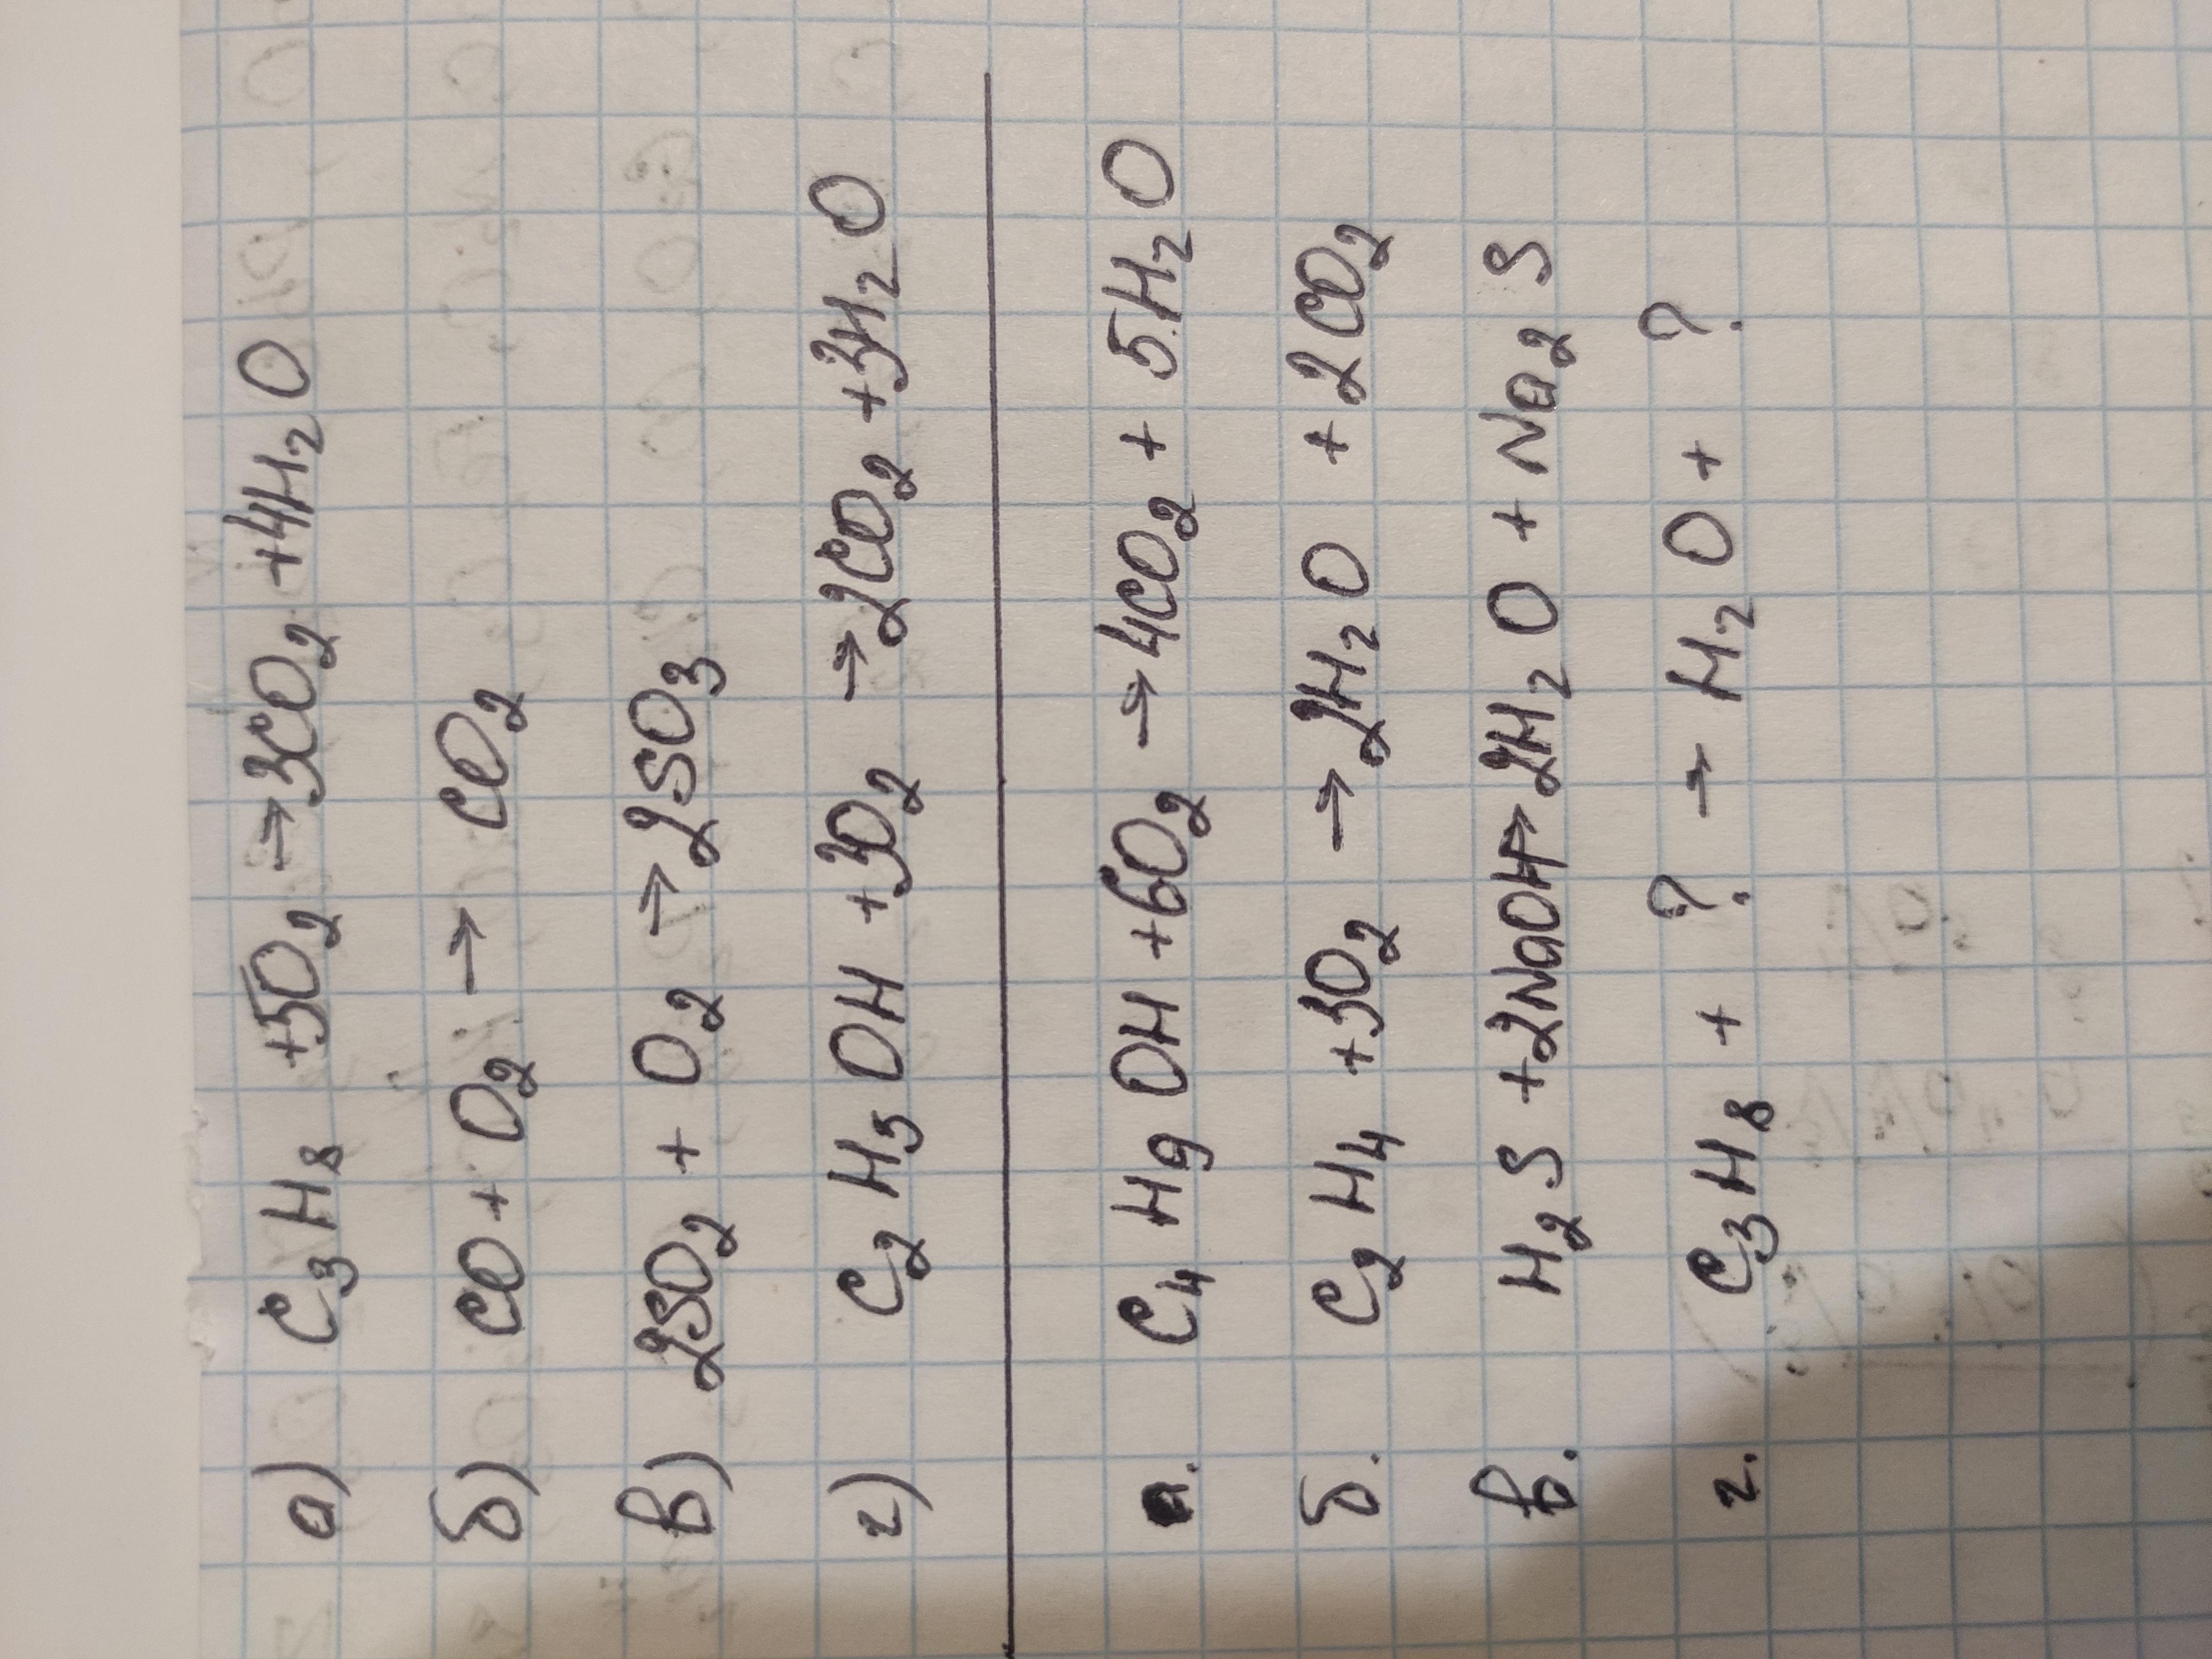 а) C₃H₈ +5O₂ →3CO₂ +4H₂O
б) CO + O₂ → CO₂
в) 2SO₂ + O₂ → 2SO₃
г) C₂H₅OH +3O₂ →2CO₂ +3H₂O
а. C₄H₉OH +6O₂ →4CO₂ + 5H₂O
б. C₂H₄ +3O₂ →2H₂O +2CO₂
в. H₂S +2NaOH→2H₂O + Na₂S
г. C₃H₈ + ? → H₂O + ?